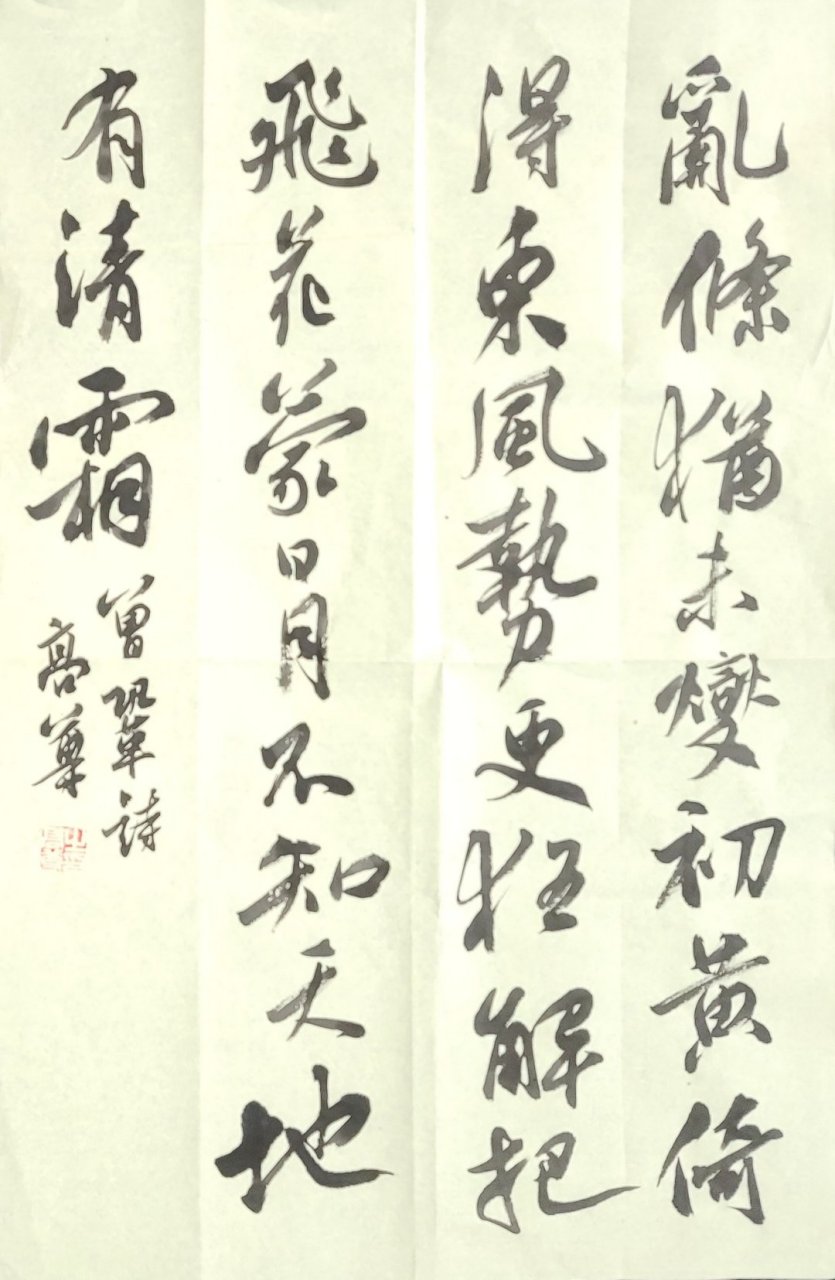 亂條猶未變初黃倚
得東風勢更狂解把
飛花蒙日月不知天地
有清霜
曾鞏詩
高尊